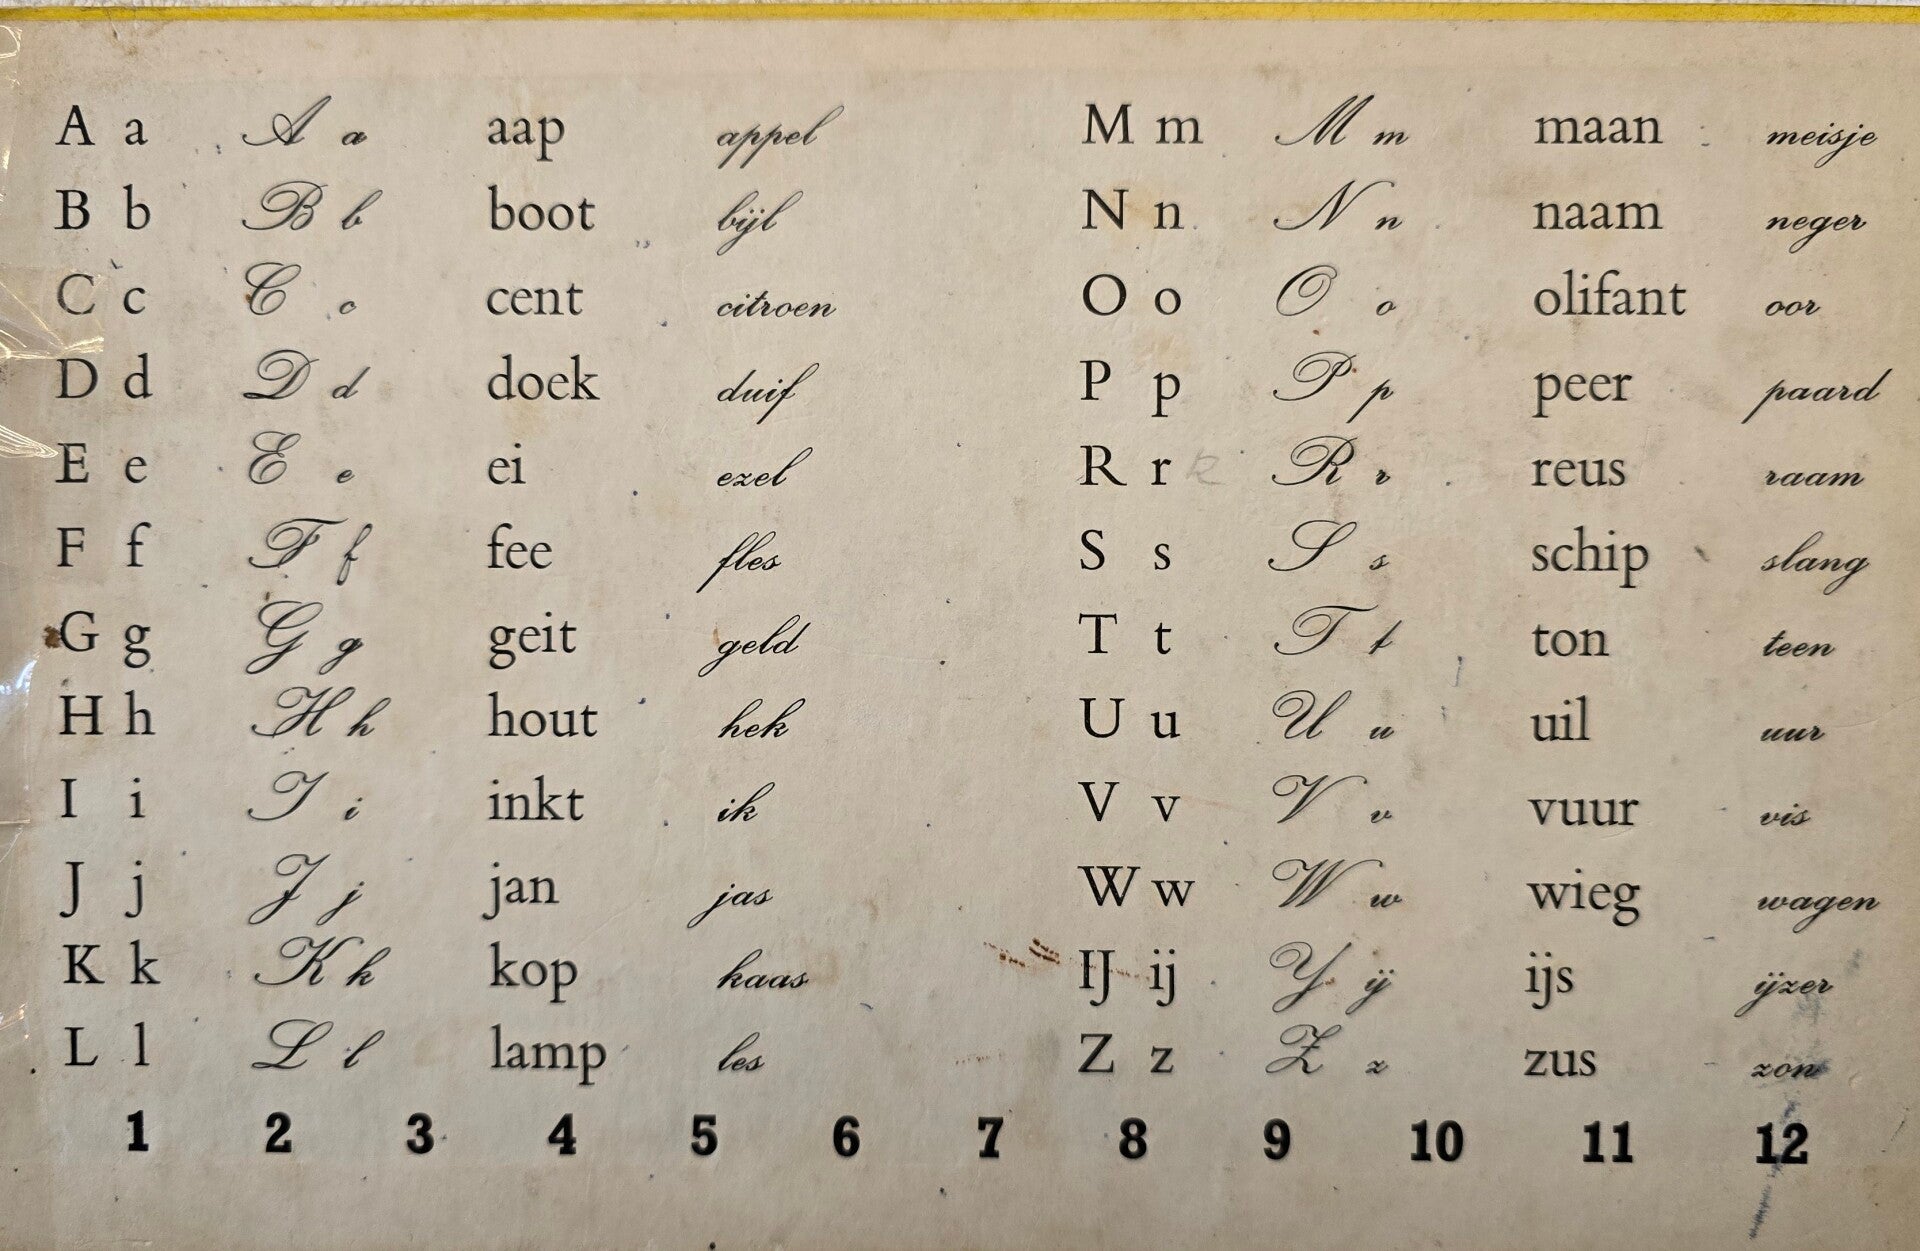 A a A a aap appel
B b B b boot bijl
C c C c cent citroen
D d D d doek duif
E e E e ei ezel
F f F f fee fles
G g G g geit geld
H h H h hout hek
I i I i inkt ik
J j J j jan jas
K k K k kop kaas
L l L l lamp les
M m M m maan meisje
N n N n naam neger
O o O o olifant oor
P p P p peer paard
R r R r reus raam
S s S s schip slang
T t T t ton teen
U u U u uil uur
V v V v vuur vis
W w W w wieg wagen
IJ ij IJ ij ijs ijzer
Z z Z z zus zon
1 2 3 4 5 6 7 8 9 10 11 12